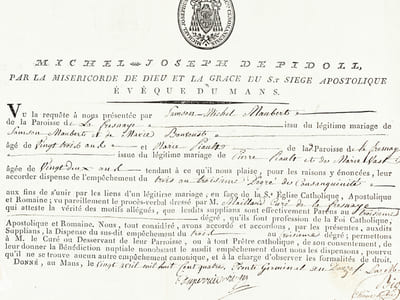 MICHEL-JOSEPH DE PIDOLL,
PAR LA MISERICORDE DE DIEU ET LA GRACE DU S.T SIEGE APOSTOLIQUE
ÉVÊQUE DU MANS.
Vu la requête à nous présentée par Samson-Michel Maubert
de la Paroisse de La fresnaye issu du légitime mariage de
Samson Maubert et de Marie
âgé de Vingt trois ans et Marie de la Paroisse de La fresnaye
issue du légitime mariage de Pierre et de Marie
âgée de Vingt-deux ans tendant à ce qu'il nous plaise, pour les raisons y énoncées, leur
accorder dispense de l'empêchement du trois au troisieme Degré de Consanguinité
aux fins de s'unir par les liens d'un légitime mariage, en face de la Ste Eglise Catholique, Apostolique
et Romaine; vu pareillement le procès-verbal dressé par M. Curé de la fresnaye
qui atteste la vérité des motifs allégués, que lesdits supplians sont effectivement Parens au troisieme
degré, qu'ils font profession de la Foi Catholique
Apostolique et Romaine. Nous, tout considéré, avons accordé et accordons, par les présentes, auxdits
Supplians, la Dispense du susdit empêchement du trois au troisieme degré; permettons
à M. le Curé ou Desservant de leur Paroisse, ou à tout Prêtre catholique, de son consentement, de
leur donner la Bénédiction nuptiale nonobstant le susdit empêchement dont nous les dispensons, pourvu
qu'il ne se trouve aucun autre empêchement canonique, et à la charge d'observer les formalités de droit.
DONNÉ, au Mans, le Vingt avril mil huit Cent quatre, Trente Germinal an Douze